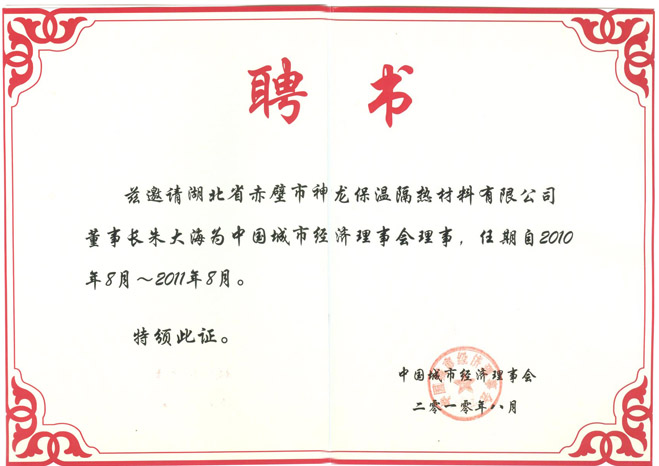 聘书
兹邀请湖北省赤壁市神龙保温隔热材料有限公司
董事长朱大海为中国城市经济理事会理事，任期自2010
年8月～2011年8月。
特颁此证。
中国城市经济理事会
二零一零年八月